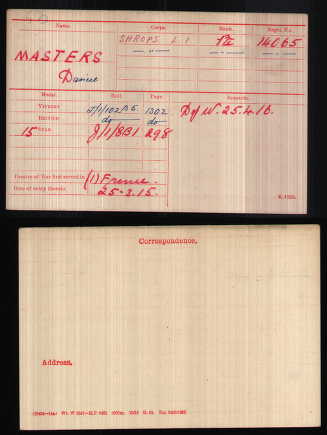 Name. Corps. Rank. Regtl. No.
SHROPS L I Pte 14065
MASTERS — " — — " — — " —
Daniel
Medal. Roll. Page. Remarks.
VICTORY J/1/102/B5 1302 D of W. 25.4.18.
BRITISH do do
15 STAR J/1/8B1 298
Theatre of War first served in (1) France.
Date of entry therein 25-9-15.
Correspondence.
Address.